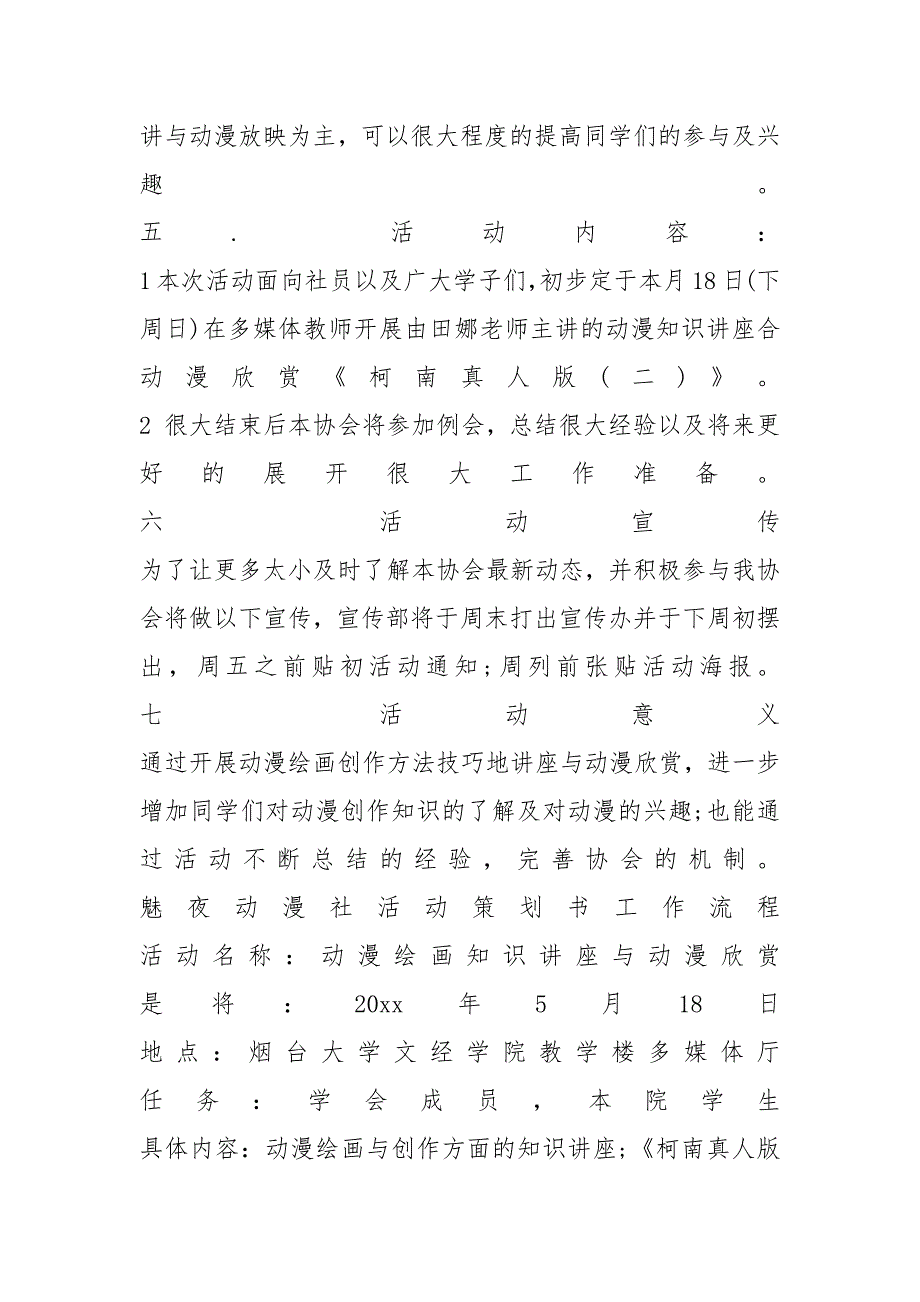 讲与动漫放映为主，可以很大程度的提高同学们的参与及兴
趣。
五．活动内容：
1本次活动面向社员以及广大学子们,初步定于本月18日(下
周日)在多媒体教师开展由田娜老师主讲的动漫知识讲座合
动漫欣赏《柯南真人版(二)》。
2 很大结束后本协会将参加例会，总结很大经验以及将来更
好的展开很大工作准备。
六 活动宣传
为了让更多太小及时了解本协会最新动态，并积极参与我协
会将做以下宣传，宣传部将于周末打出宣传办并于下周初摆
出，周五之前贴初活动通知;周列前张贴活动海报。
七 活动意义
通过开展动漫绘画创作方法技巧地讲座与动漫欣赏，进一步
增加同学们对动漫创作知识的了解及对动漫的兴趣;也能通
过活动不断总结的经验，完善协会的机制。
魅夜动漫社活动策划书工作流程
活动名称：动漫绘画知识讲座与动漫欣赏
是将：20xx年5月18日
地点：烟台大学文经学院教学楼多媒体厅
任务：学会成员，本院学生
具体内容：动漫绘画与创作方面的知识讲座;《柯南真人版